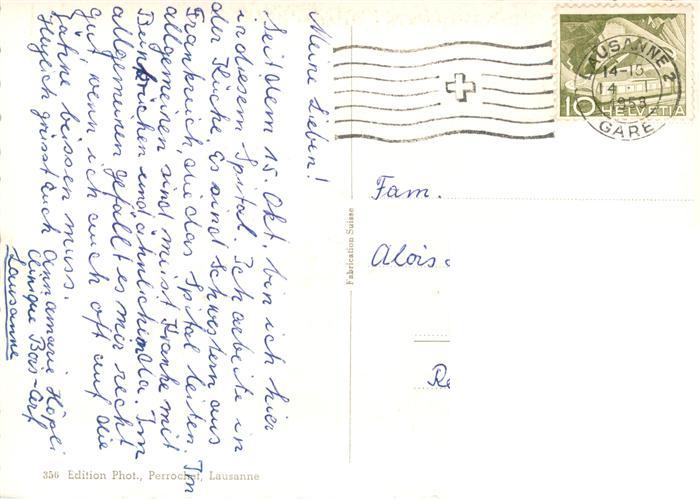 Meine Lieben!
Seit dem 15. Okt. bin ich hier
in diesem Spital. Ich arbeite in
der Küche. Es sind Schwestern aus
Frankreich, die das Spital leiten. Im
allgemeinen sind meist Kranke mit
Bein brüchen und ähnlichem da. Im
allgemeinen gefällt es mir recht
gut, wenn ich auch oft auf die
Zähne beissen muss.
Herzlich grüsst Euch Annamarie Höpli
Clinique Bois-Cerf
Lausanne
LAUSANNE 2
14-15
14
1953
GARE
10 HELVETIA
Fam.
Alois
Re
Fabrication Suisse
356 Edition Phot., Perrochet, Lausanne